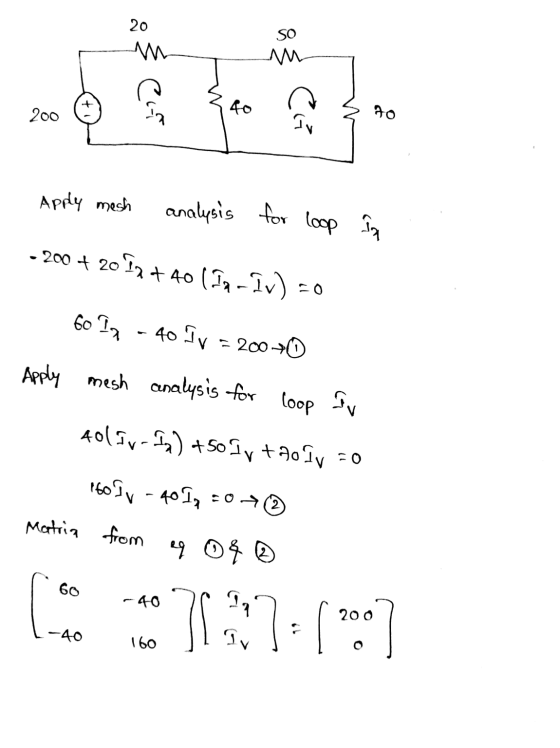 20
50
200
I𝑥
40
Iy
70
Apply mesh analysis for loop I𝑥
- 200 + 20 I𝑥 + 40 (I𝑥 - Iy) = 0
60 I𝑥 - 40 Iy = 200 → ①
Apply mesh analysis for loop Iy
40(Iy - I𝑥) + 50 Iy + 70 Iy = 0
160 Iy - 40 I𝑥 = 0 → ②
Matrix from eq ① & ②
[60 -40] [I𝑥] = [200]
[-40 160] [Iy] [0]